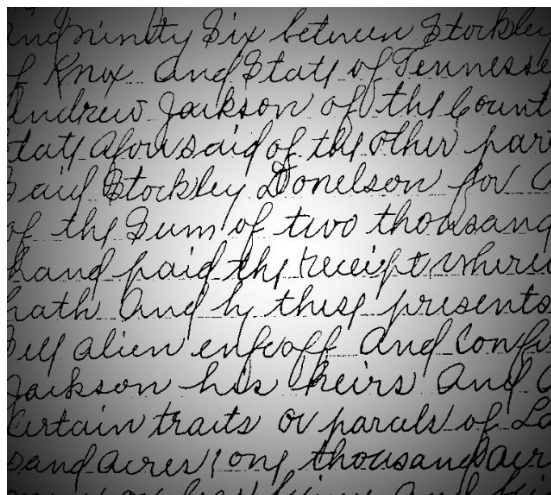 and ninety Six between Stockley
of Knox and State of Tennesse
Andrew Jackson of the Count
State aforesaid of the other par
Said Stockley Donelson for
of the Sum of two thousand
hand paid the receipt where
hath and by these presents
Sell alien enfeoff and Confi
Jackson his heirs and
Certain traits or parcels of La
sand acres one thousand acr